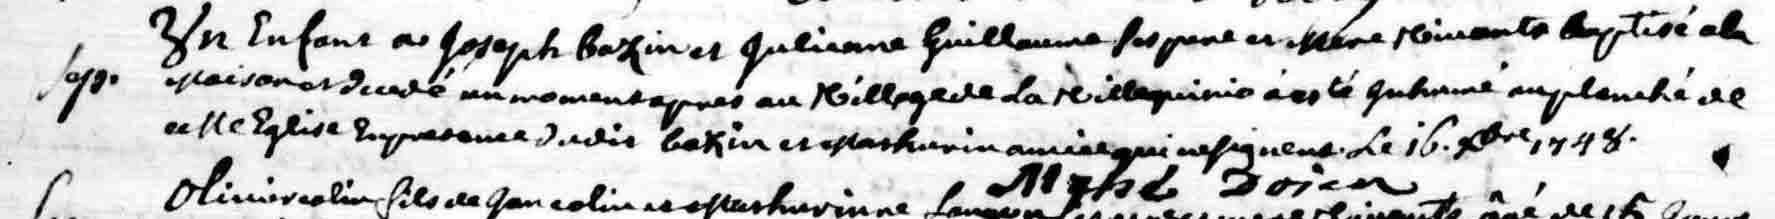 Un Enfant de Joseph bazin et Julienne Guillaume ses pere et Mere vivants baptisé a la
sep. maison et decedé un moment apres au village de La ville quinio a esté Inhumé au planché de
cette Eglise En presence dudit bazin et Mathurin amice qui ne signent. Le 16. xbre 1748.
Doien
Olivier colin fils de Jan colin et Mathurinne